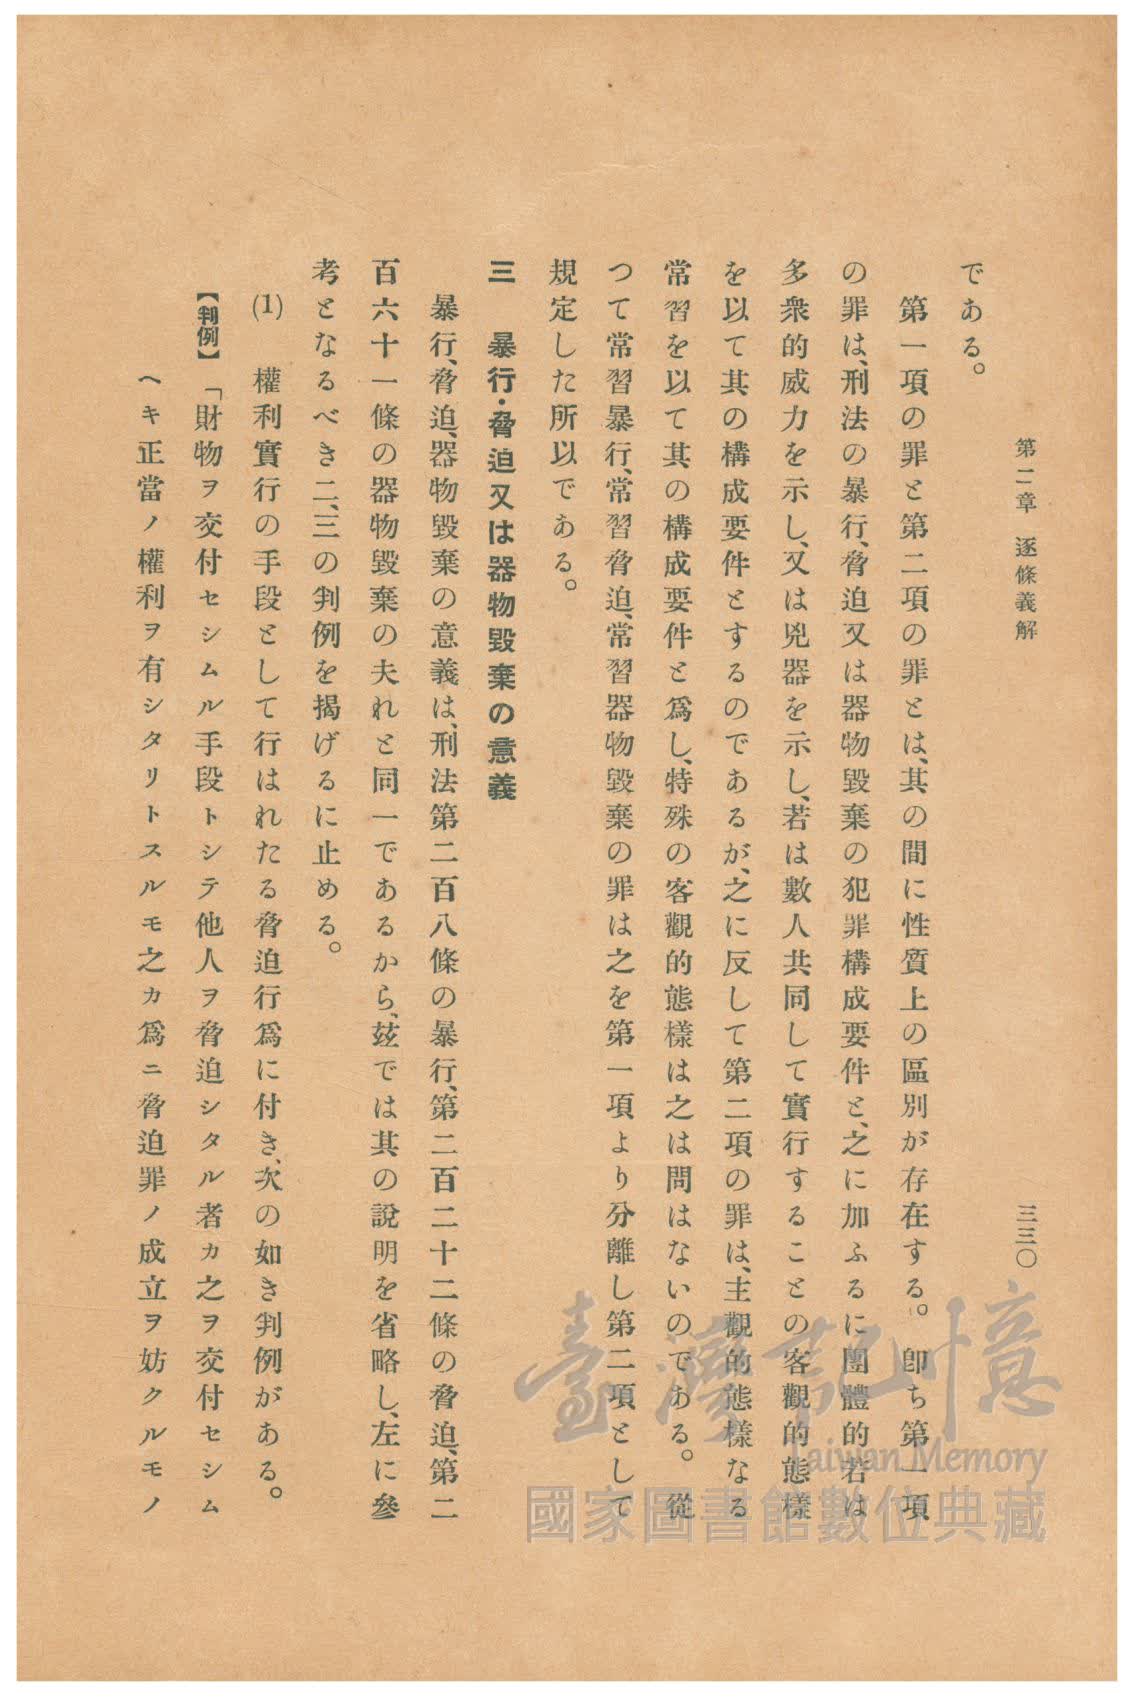 第二章　逐條義解
三三〇
である。
第一項の罪と第二項の罪とは、其の間に性質上の區別が存在する。卽ち第一項
の罪は、刑法の暴行、脅迫又は器物毀棄の犯罪構成要件と、之に加ふるに團體的若は
多衆的威力を示し、又は兇器を示し、若は數人共同して實行することの客觀的態樣
を以て其の構成要件とするのであるが、之に反して第二項の罪は、主觀的態樣なる
常習を以て其の構成要件と爲し、特殊の客觀的態樣は之は問はないのである。從
つて常習暴行、常習脅迫、常習器物毀棄の罪は之を第一項より分離し第二項として
規定した所以である。
三　暴行・脅迫又は器物毀棄の意義
暴行、脅迫、器物毀棄の意義は、刑法第二百八條の暴行、第二百二十二條の脅迫、第二
百六十一條の器物毀棄の夫れと同一であるから、玆では其の說明を省略し、左に參
考となるべき二、三の判例を揭げるに止める。
(1)　權利實行の手段として行はれたる脅迫行爲に付き、次の如き判例がある。
【判例】「財物ヲ交付セシムル手段トシテ他人ヲ脅迫シタル者カ之ヲ交付セシム
ヘキ正當ノ權利ヲ有シタリトスルモ之カ爲ニ脅迫罪ノ成立ヲ妨クルモノ
臺灣記憶
Taiwan Memory
國家圖書館數位典藏